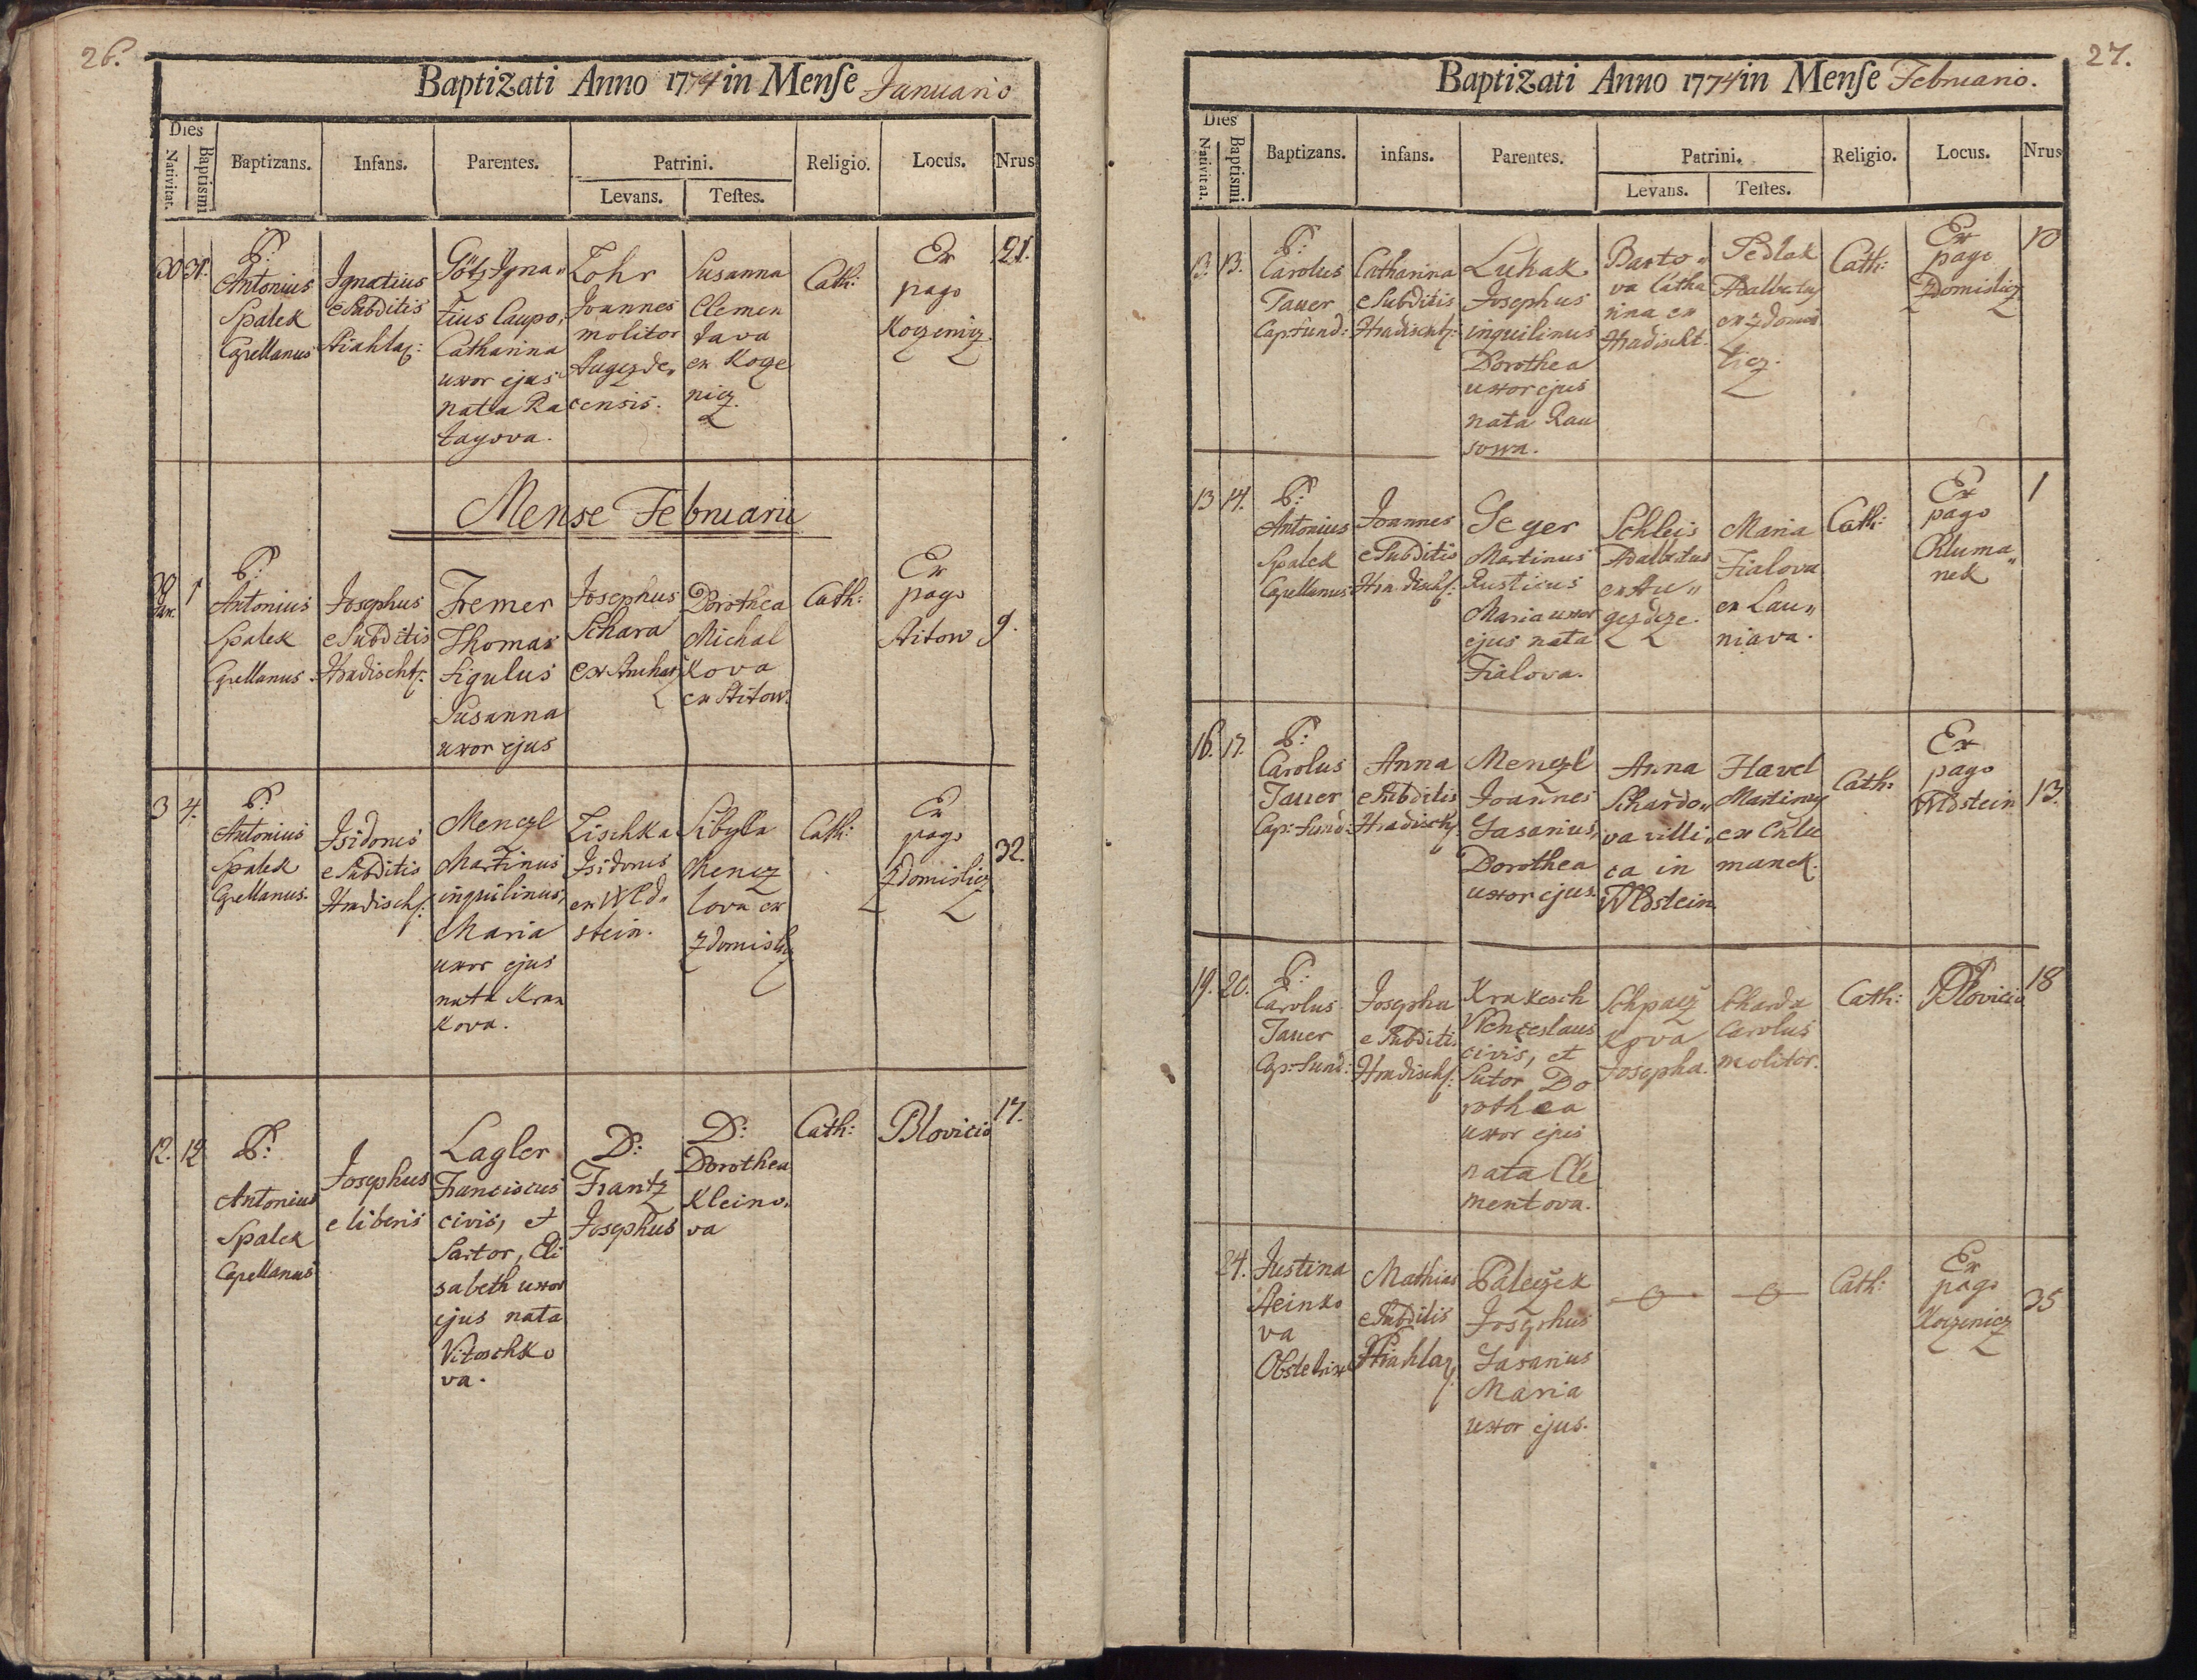 26.
Baptizati Anno 1774 in Menſe Januario
Dies
Nativitat.
Baptismi
Baptizans.
Infans.
Parentes.
Patrini.
Levans.
Teſtes.
Religio.
Locus.
Nrus
30
31.
P:
Antonius
Spalek
Capellanus
Ignatius
e Subditis
Stiahla:
Götz Igna„
tius Caupo,
Catharina
uxor ejus
nata Ra
tayova.
Zohr
Joannes
molitor
Augezde„
censis.
Susanna
Clemen
tava
ex Koze
nicz.
Cath:
Ex
pago
Koczenicz.
21.
Mense Februarii
Jan:
1
P:
Antonius
Spalek
Capellanus
Josephus
e Subditis
Hradischt:
Fremer
Thomas
figulus
Susanna
uxor ejus
Josephus
Schara
Dorothea
Michal
kova
ex Stitow.
Cath:
Ex
pago
Stitow
9.
3
4.
P:
Antonius
Spalek
Capellanus.
Isidorus
e Subditis
Hradisch:
Menczl
Martinus
inquilinus,
Maria
uxor ejus
nata Kra
kova.
Zischka
Isidorus
ex Wld„
stein.
Sibylla
Mencz
lova ex
Zdomislicz
Cath:
Ex
pago
Zdomislicz
32.
12.
12
P:
Antonius
Spalek
Capellanus
Josephus
e liberis
Lagler
Franciscus
civis, et
Sartor, Eli
sabeth uxor
ejus nata
Vitoschko
va.
D:
Frantz
Josephus
D:
Dorothea
Kleino„
va
Cath:
Blovicio
17.
27.
Baptizati Anno 1774 in Menſe Februario.
Dies
Nativitat.
Baptismi
Baptizans.
infans.
Parentes.
Patrini.
Levans.
Teſtes.
Religio.
Locus.
Nrus
13.
13.
P:
Carolus
Tauer
Cap: fund:
Catharina
e Subditis
Hradischt:
Lukak
Josephus
inquilinus
Dorothea
uxor ejus
nata Rau
sowa.
Barto„
va Catha
rina ex
Hradischt.
Sedlak
Adalbertus
ex Zdomis
licz.
Cath:
Ex
pago
Zdomislicz
10
13
14.
P:
Antonius
Spalek
Capellanus
Joannes
e Subditis
Hradisch:
Seger
Martinus
Rusticus
Maria uxor
ejus nata
Fialova.
Schleis
Adalbertus
ex Au„
gezdze.
Maria
Fialova
ex Lau„
niava.
Cath:
Ex
pago
Chluma„
nek
1
16.
17.
P:
Carolus
Tauer
Cap: fund:
Anna
e Subditis
Hradisch:
Menczl
Joannes
Casarius,
Dorothea
uxor ejus.
Anna
Schardo„
va villi„
ca in
Wldstein
Havel
Martinus
ex Chlu
manek.
Cath:
Ex
pago
Wldstein
13.
19.
20.
P:
Carolus
Tauer
Cap: fund:
Josepha
e Subditi.
Hradisch:
Krakesch
Wenceslaus
civis, et
Sutor, Do
rothea
uxor ejus
nata Cle
mentova.
Schpacz
kova
Josepha.
Scharda
Carolus
molitor.
Cath:
Blovicio
18
24.
Justina
Steinko
va
Obstetrix
Mathias
e Subditis
Stiahla:
Paleczek
Josephus
Casarius
Maria
uxor ejus.
Cath:
Ex
pago
Koczenicz
35